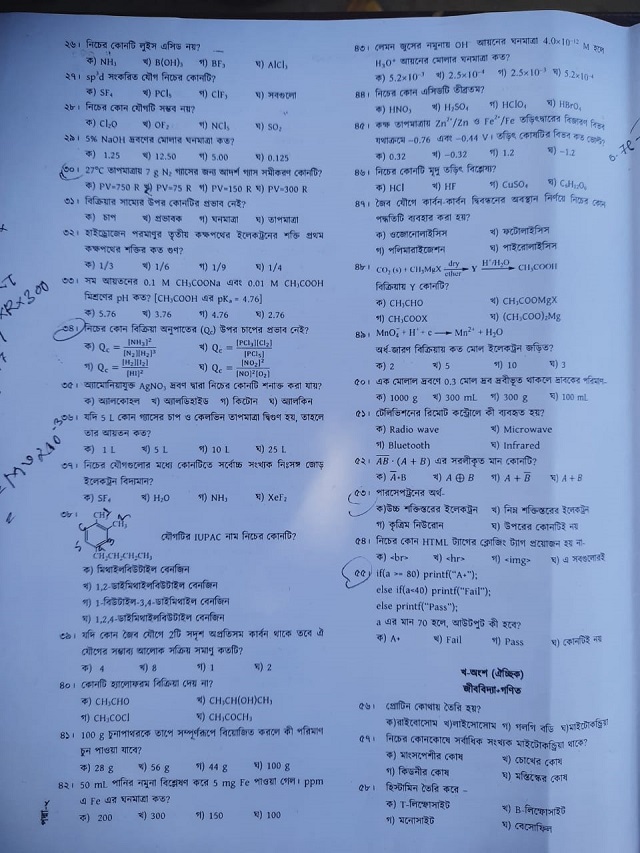 ২৬। নিচের কোনটি লুইস এসিড নয়?
ক) NH₃ খ) B(OH)₃ গ) BF₃ ঘ) AlCl₃
২৭। sp³d সংকরিত যৌগ নিচের কোনটি?
ক) SF₄ খ) PCl₅ গ) ClF₃ ঘ) সবগুলো
২৮। নিচের কোন যৌগটি সম্ভব নয়?
ক) Cl₂O খ) OF₂ গ) NCl₅ ঘ) SO₂
২৯। 5% NaOH দ্রবণের মোলার ঘনমাত্রা কত?
ক) 1.25 খ) 12.50 গ) 5.00 ঘ) 0.125
৩০। 27°C তাপমাত্রায় 7 g N₂ গ্যাসের জন্য আদর্শ গ্যাস সমীকরণ কোনটি?
ক) PV=750 R খ) PV=75 R গ) PV=150 R ঘ) PV=300 R
৩১। বিক্রিয়ার সাম্যের উপর কোনটির প্রভাব নেই?
ক) চাপ খ) প্রভাবক গ) ঘনমাত্রা ঘ) তাপমাত্রা
৩২। হাইড্রোজেন পরমাণুর তৃতীয় কক্ষপথের ইলেকট্রনের শক্তি প্রথম
কক্ষপথের শক্তির কত গুণ?
ক) 1/3 খ) 1/6 গ) 1/9 ঘ) 1/4
৩৩। সম আয়তনের 0.1 M CH₃COONa এবং 0.01 M CH₃COOH
মিশ্রণের pH কত? [CH₃COOH এর pKₐ = 4.76]
ক) 5.76 খ) 3.76 গ) 4.76 ঘ) 2.76
৩৪। নিচের কোন বিক্রিয়া অনুপাতের (Qc) উপর চাপের প্রভাব নেই?
ক) Qc = [NH₃]²/[N₂][H₂]³ খ) Qc = [PCl₃][Cl₂]/[PCl₅]
গ) Qc = [H₂][I₂]/[HI]² ঘ) Qc = [NO₂]²/[NO]²[O₂]
৩৫। অ্যামোনিয়াযুক্ত AgNO₃ দ্রবণ দ্বারা নিচের কোনটি শনাক্ত করা যায়?
ক) অ্যালকোহল খ) অ্যালডিহাইড গ) কিটোন ঘ) অ্যালকিন
৩৬। যদি 5 L কোন গ্যাসের চাপ ও কেলভিন তাপমাত্রা দ্বিগুণ হয়, তাহলে
তার আয়তন কত?
ক) 1 L খ) 5 L গ) 10 L ঘ) 25 L
৩৭। নিচের যৌগগুলোর মধ্যে কোনটিতে সর্বোচ্চ সংখ্যক নিঃসঙ্গ জোড়
ইলেকট্রন বিদ্যমান?
ক) SF₄ খ) H₂O গ) NH₃ ঘ) XeF₂
৩৮। CH₃
CH₃
যৌগটির IUPAC নাম নিচের কোনটি?
CH₂CH₂CH₂CH₃
ক) মিথাইলবিউটাইল বেনজিন
খ) 1,2-ডাইমিথাইলবিউটাইল বেনজিন
গ) 1-বিউটাইল-3,4-ডাইমিথাইল বেনজিন
ঘ) 1,2,4-ডাইমিথাইলবিউটাইল বেনজিন
৩৯। যদি কোন জৈব যৌগে 2টি সদৃশ অপ্রতিসম কার্বন থাকে তবে ঐ
যৌগের সম্ভাব্য আলোক সক্রিয় সমাণু কতটি?
ক) 4 খ) 8 গ) 1 ঘ) 2
৪০। কোনটি হ্যালোফরম বিক্রিয়া দেয় না?
ক) CH₃CHO খ) CH₃CH(OH)CH₃
গ) CH₃COCl ঘ) CH₃COCH₃
৪১। 100 g চুনাপাথরকে তাপে সম্পূর্ণরূপে বিয়োজিত করলে কী পরিমাণ
চুন পাওয়া যাবে?
ক) 28 g খ) 56 g গ) 44 g ঘ) 100 g
৪২। 50 mL পানির নমুনা বিশ্লেষণ করে 5 mg Fe পাওয়া গেল। ppm
এ Fe এর ঘনমাত্রা কত?
ক) 200 খ) 300 গ) 150 ঘ) 100
৪৩। লেমন জুসের নমুনায় OH⁻ আয়নের ঘনমাত্রা 4.0×10⁻¹² M হলে
H₃O⁺ আয়নের মোলার ঘনমাত্রা কত?
ক) 5.2×10⁻³ খ) 2.5×10⁻⁴ গ) 2.5×10⁻³ ঘ) 5.2×10⁻⁴
৪৪। নিচের কোন এসিডটি তীব্রতম?
ক) HNO₃ খ) H₂SO₄ গ) HClO₄ ঘ) HBrO₄
৪৫। কক্ষ তাপমাত্রায় Zn²⁺/Zn ও Fe²⁺/Fe তড়িৎদ্বারের বিজারণ বিভব
যথাক্রমে −0.76 এবং −0.44 V। তড়িৎ কোষটির বিভব কত ভোল্ট?
ক) 0.32 খ) −0.32 গ) 1.2 ঘ) −1.2
৪৬। নিচের কোনটি মৃদু তড়িৎ বিশ্লেষ্য?
ক) HCl খ) HF গ) CuSO₄ ঘ) C₆H₁₂O₆
৪৭। জৈব যৌগে কার্বন-কার্বন দ্বিবন্ধনের অবস্থান নির্ণয়ে নিচের কোন
পদ্ধতিটি ব্যবহার করা হয়?
ক) ওজোনোলাইসিস খ) ফটোলাইসিস
গ) পলিমারাইজেশন ঘ) পাইরোলাইসিস
৪৮। CO₂ (s) + CH₃MgX dry ether → Y H⁺/H₂O → CH₃COOH
বিক্রিয়ায় Y কোনটি?
ক) CH₃CHO খ) CH₃COOMgX
গ) CH₃COOX ঘ) (CH₃COO)₂Mg
৪৯। MnO₄⁻ + H⁺ + e → Mn²⁺ + H₂O
অর্ধ-জারণ বিক্রিয়ায় কত মোল ইলেকট্রন জড়িত?
ক) 2 খ) 5 গ) 10 ঘ) 3
৫০। এক মোলাল দ্রবণে 0.3 মোল দ্রব দ্রবীভূত থাকলে দ্রাবকের পরিমাণ-
ক) 1000 g খ) 300 mL গ) 300 g ঘ) 100 mL
৫১। টেলিভিশনের রিমোট কন্ট্রোলে কী ব্যবহৃত হয়?
ক) Radio wave খ) Microwave
গ) Bluetooth ঘ) Infrared
৫২। A̅B̅ · (A + B) এর সরলীকৃত মান কোনটি?
ক) A̅·B খ) A ⊕ B গ) A + B̅ ঘ) A + B
৫৩। পারসেপট্রনের অর্থ-
ক) উচ্চ শক্তিস্তরের ইলেকট্রন খ) নিম্ন শক্তিস্তরের ইলেকট্রন
গ) কৃত্রিম নিউরোন ঘ) উপরের কোনটিই নয়
৫৪। নিচের কোন HTML ট্যাগের ক্লোজিং ট্যাগ প্রয়োজন হয় না-
ক) <br> খ) <hr> গ) <img> ঘ) এ সবগুলোরই
৫৫। if(a >= 80) printf("A+");
else if(a<40) printf("Fail");
else printf("Pass");
a এর মান 70 হলে, আউটপুট কী হবে?
ক) A+ খ) Fail গ) Pass ঘ) কোনটিই নয়
খ-অংশ (ঐচ্ছিক)
জীববিদ্যা+গণিত
৫৬। প্রোটিন কোথায় তৈরি হয়?
ক) রাইবোসোম খ) লাইসোসোম গ) গলগি বডি ঘ) মাইটোকন্ড্রিয়া
৫৭। নিচের কোনকোষে সর্বাধিক সংখ্যক মাইটোকন্ড্রিয়া থাকে?
ক) মাংসপেশীর কোষ খ) চোখের কোষ
গ) কিডনীর কোষ ঘ) মস্তিষ্কের কোষ
৫৮। হিস্টামিন তৈরি করে –
ক) T-লিম্ফোসাইট খ) B-লিম্ফোসাইট
গ) মনোসাইট ঘ) বেসোফিল